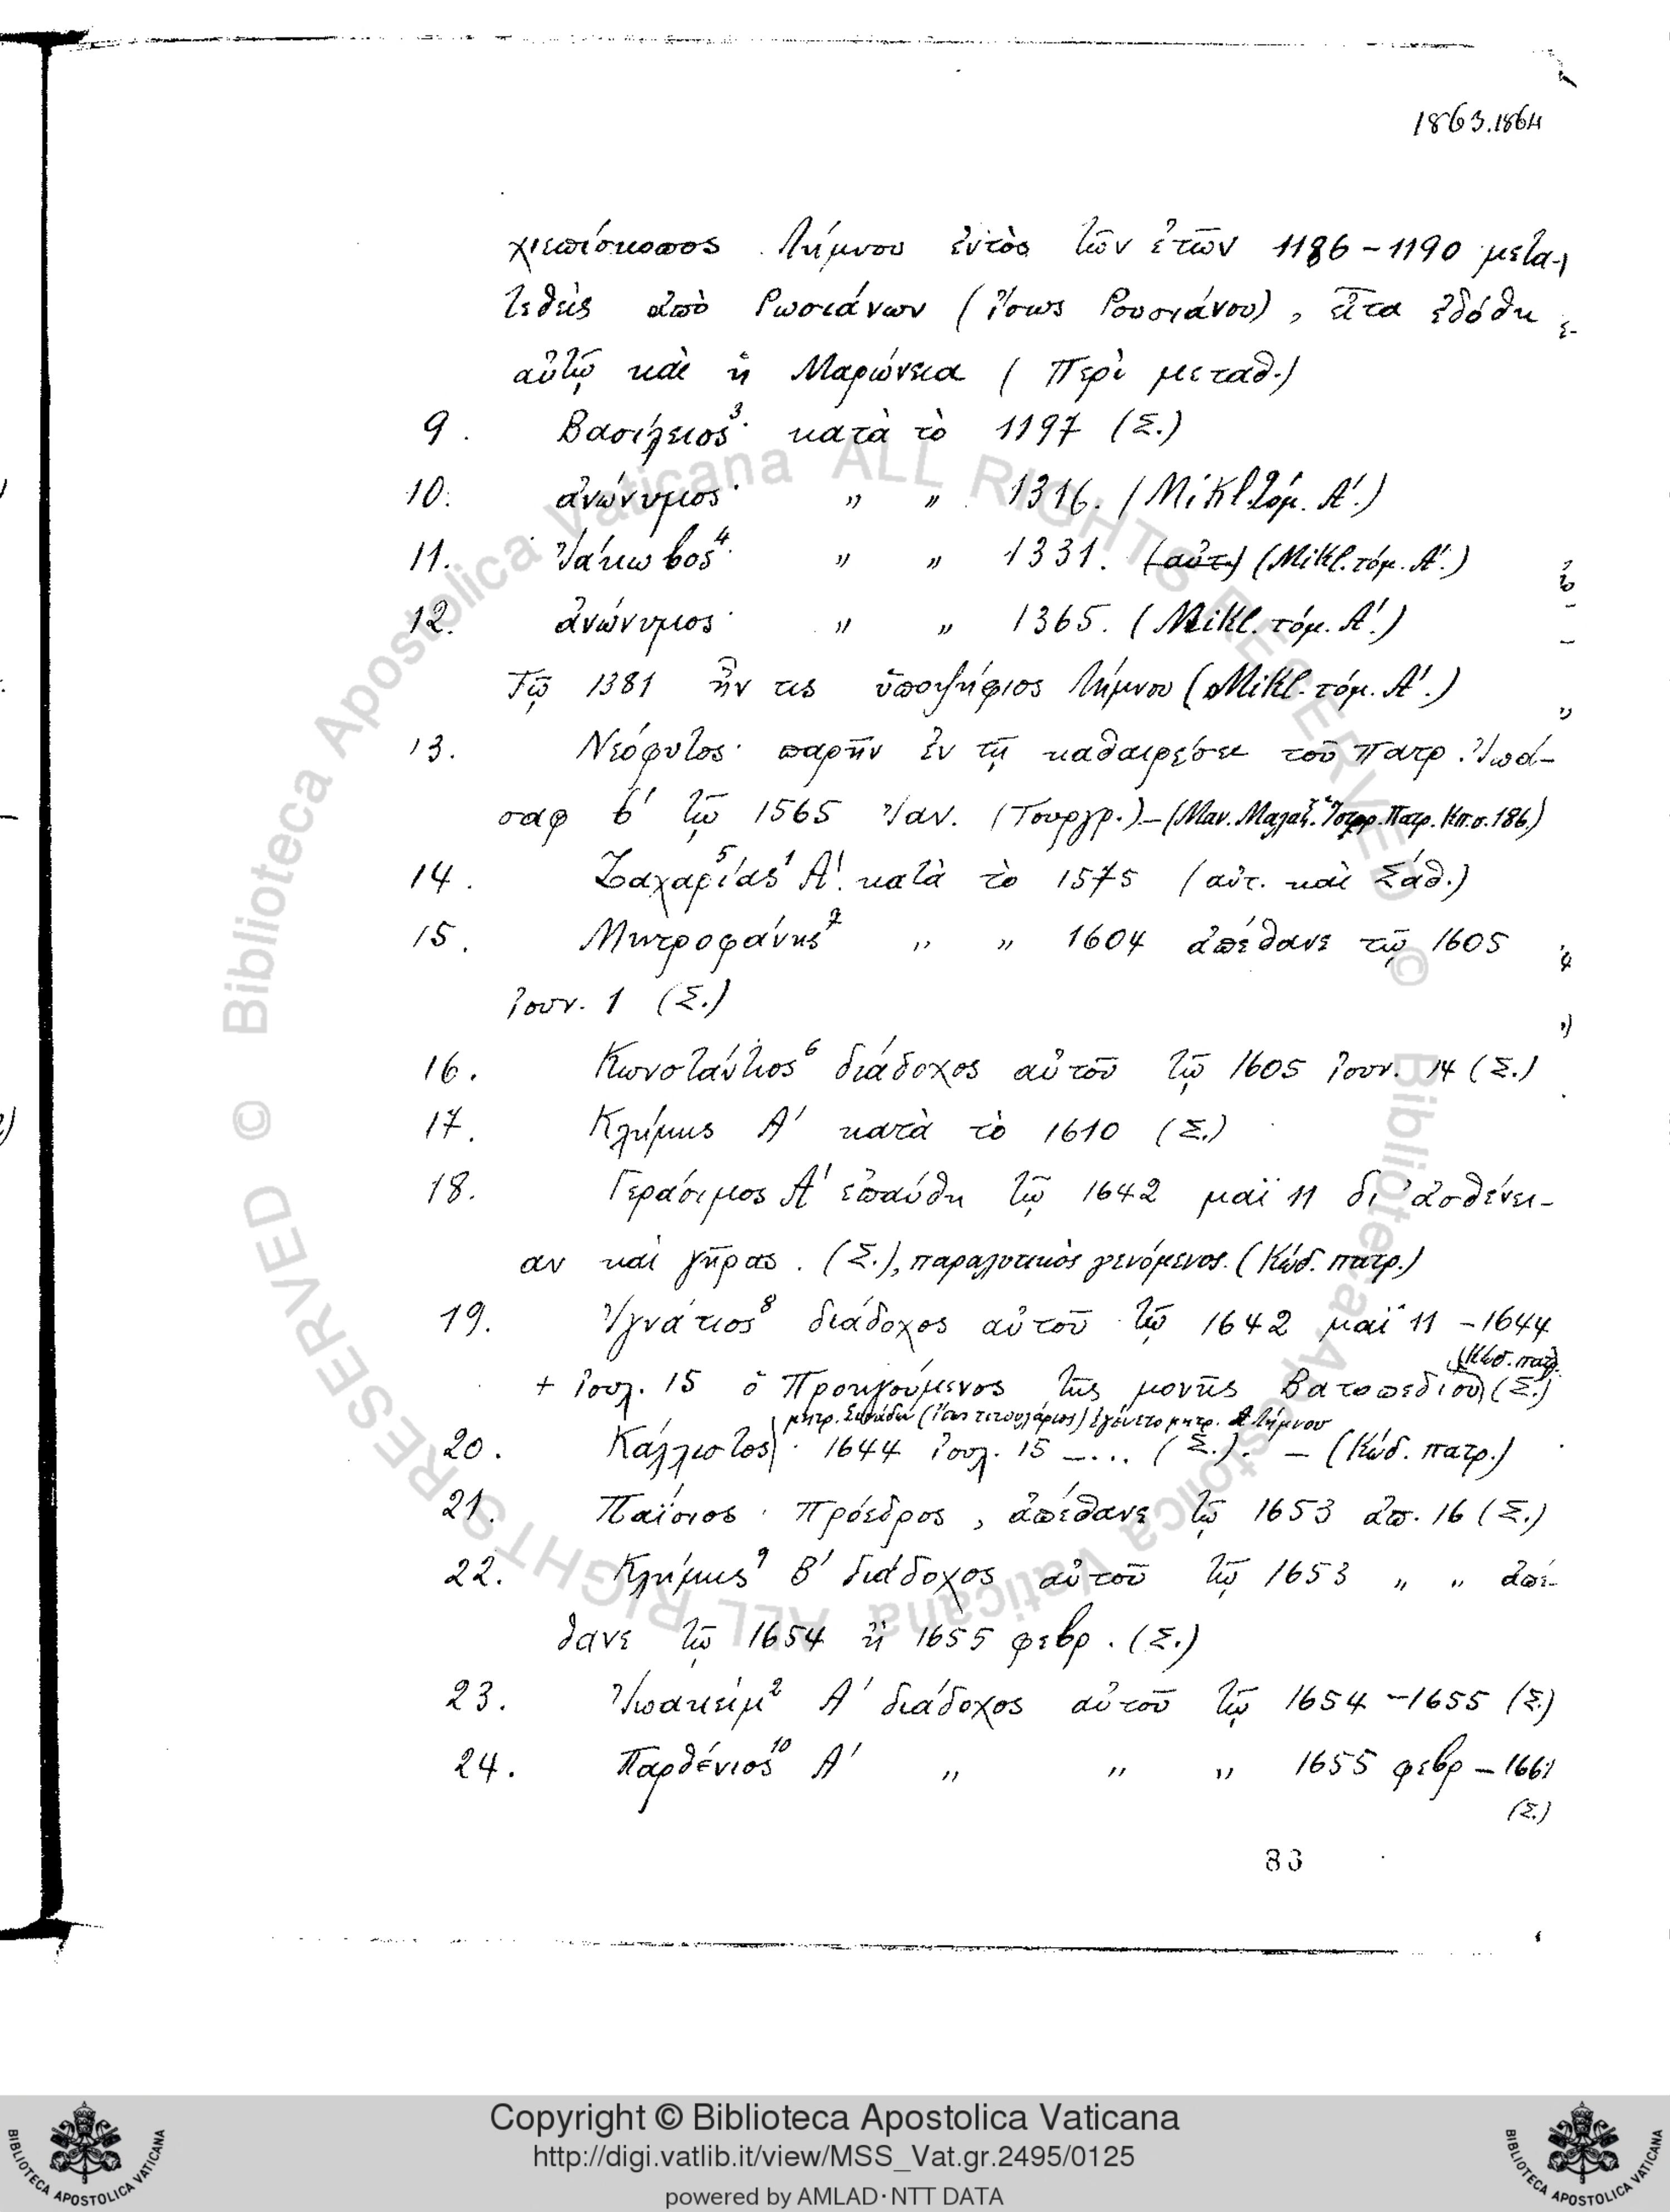 1863.1864
χιεπίσκοπος Λήμνου ἐντὸς τῶν ἐτῶν 1186-1190 μετα-
τεθεὶς ἀπὸ Ῥωσιάνων (ἴσως Ῥουσιάνου), εἶτα ἐδόθη
αὐτῷ καὶ ἡ Μαρώνεια (Περὶ μεταθ.)
9. Βασίλειος³· κατὰ τὸ 1197 (Σ.)
10. ἀνώνυμος· " " 1316. (Mikl. τόμ. Α'.)
11. Ἰάκωβος⁴· " " 1331. (αὐτ.) (Mikl. τόμ. Α'.)
12. ἀνώνυμος· " " 1365. (Mikl. τόμ. Α'.)
Τῷ 1381 ἦν τις ὑποψήφιος Λήμνου (Mikl. τόμ. Α'.)
13. Νεόφυτος· παρῆν ἐν τῇ καθαιρέσει τοῦ πατρ. Ἰωά-
σαφ β' τῷ 1565 Ἰαν. (Τουργρ.)-(Μαν. Μαλαξ. Ἱστορ. Πατρ. Κπ. σ. 186.)
14. Ζαχαρίας⁵ ¹ Α'. κατὰ τὸ 1575 (αὐτ. καὶ Σάθ.)
15. Μητροφάνης⁷ " " 1604 ἀπέθανε τῷ 1605
ἰουν. 1 (Σ.)
16. Κωνστάντιος⁶ διάδοχος αὐτοῦ τῷ 1605 ἰουν. 14 (Σ.)
17. Κλήμης Α' κατὰ τὸ 1610 (Σ.)
18. Γεράσιμος Α' ἐπαύθη τῷ 1642 μαΐ 11 δι' ἀσθένει-
αν καὶ γῆρας. (Σ.), παραλυτικὸς γενόμενος. (Κώδ. πατρ.)
19. Ἰγνάτιος⁸ διάδοχος αὐτοῦ τῷ 1642 μαΐ 11 - 1644
(Κώδ. πατρ.
+ ἰουλ. 15 ὁ Προηγούμενος τῆς μονῆς Βατοπεδίου (Σ.)
μητρ. (ἴσως τιτουλάριος) ἐγένετο μητρ. Λήμνου
20. Κάλλιστος· 1644 ἰουλ. 15 -... (Σ.). - (Κώδ. πατρ.)
21. Παΐσιος· Πρόεδρος, ἀπέθανε τῷ 1653 ἀπ. 16 (Σ.)
22. Κλήμης⁹ Β' διάδοχος αὐτοῦ τῷ 1653 " " ἀπέ-
θανε τῷ 1654 ἢ 1655 φεβρ. (Σ.)
23. Ἰωακεὶμ² Α' διάδοχος αὐτοῦ τῷ 1654-1655 (Σ.)
24. Παρθένιος¹⁰ Α' " " " 1655 φεβρ - 1661
(Σ.)
83
© Biblioteca Apostolica Vaticana ALL RIGHTS RESERVED © Biblioteca Apostolica Vaticana ALL RIGHTS RESERVED
Copyright © Biblioteca Apostolica Vaticana
http://digi.vatlib.it/view/MSS_Vat.gr.2495/0125
powered by AMLAD·NTT DATA
BIBLIOTECA APOSTOLICA VATICANA
BIBLIOTECA APOSTOLICA VATICANA